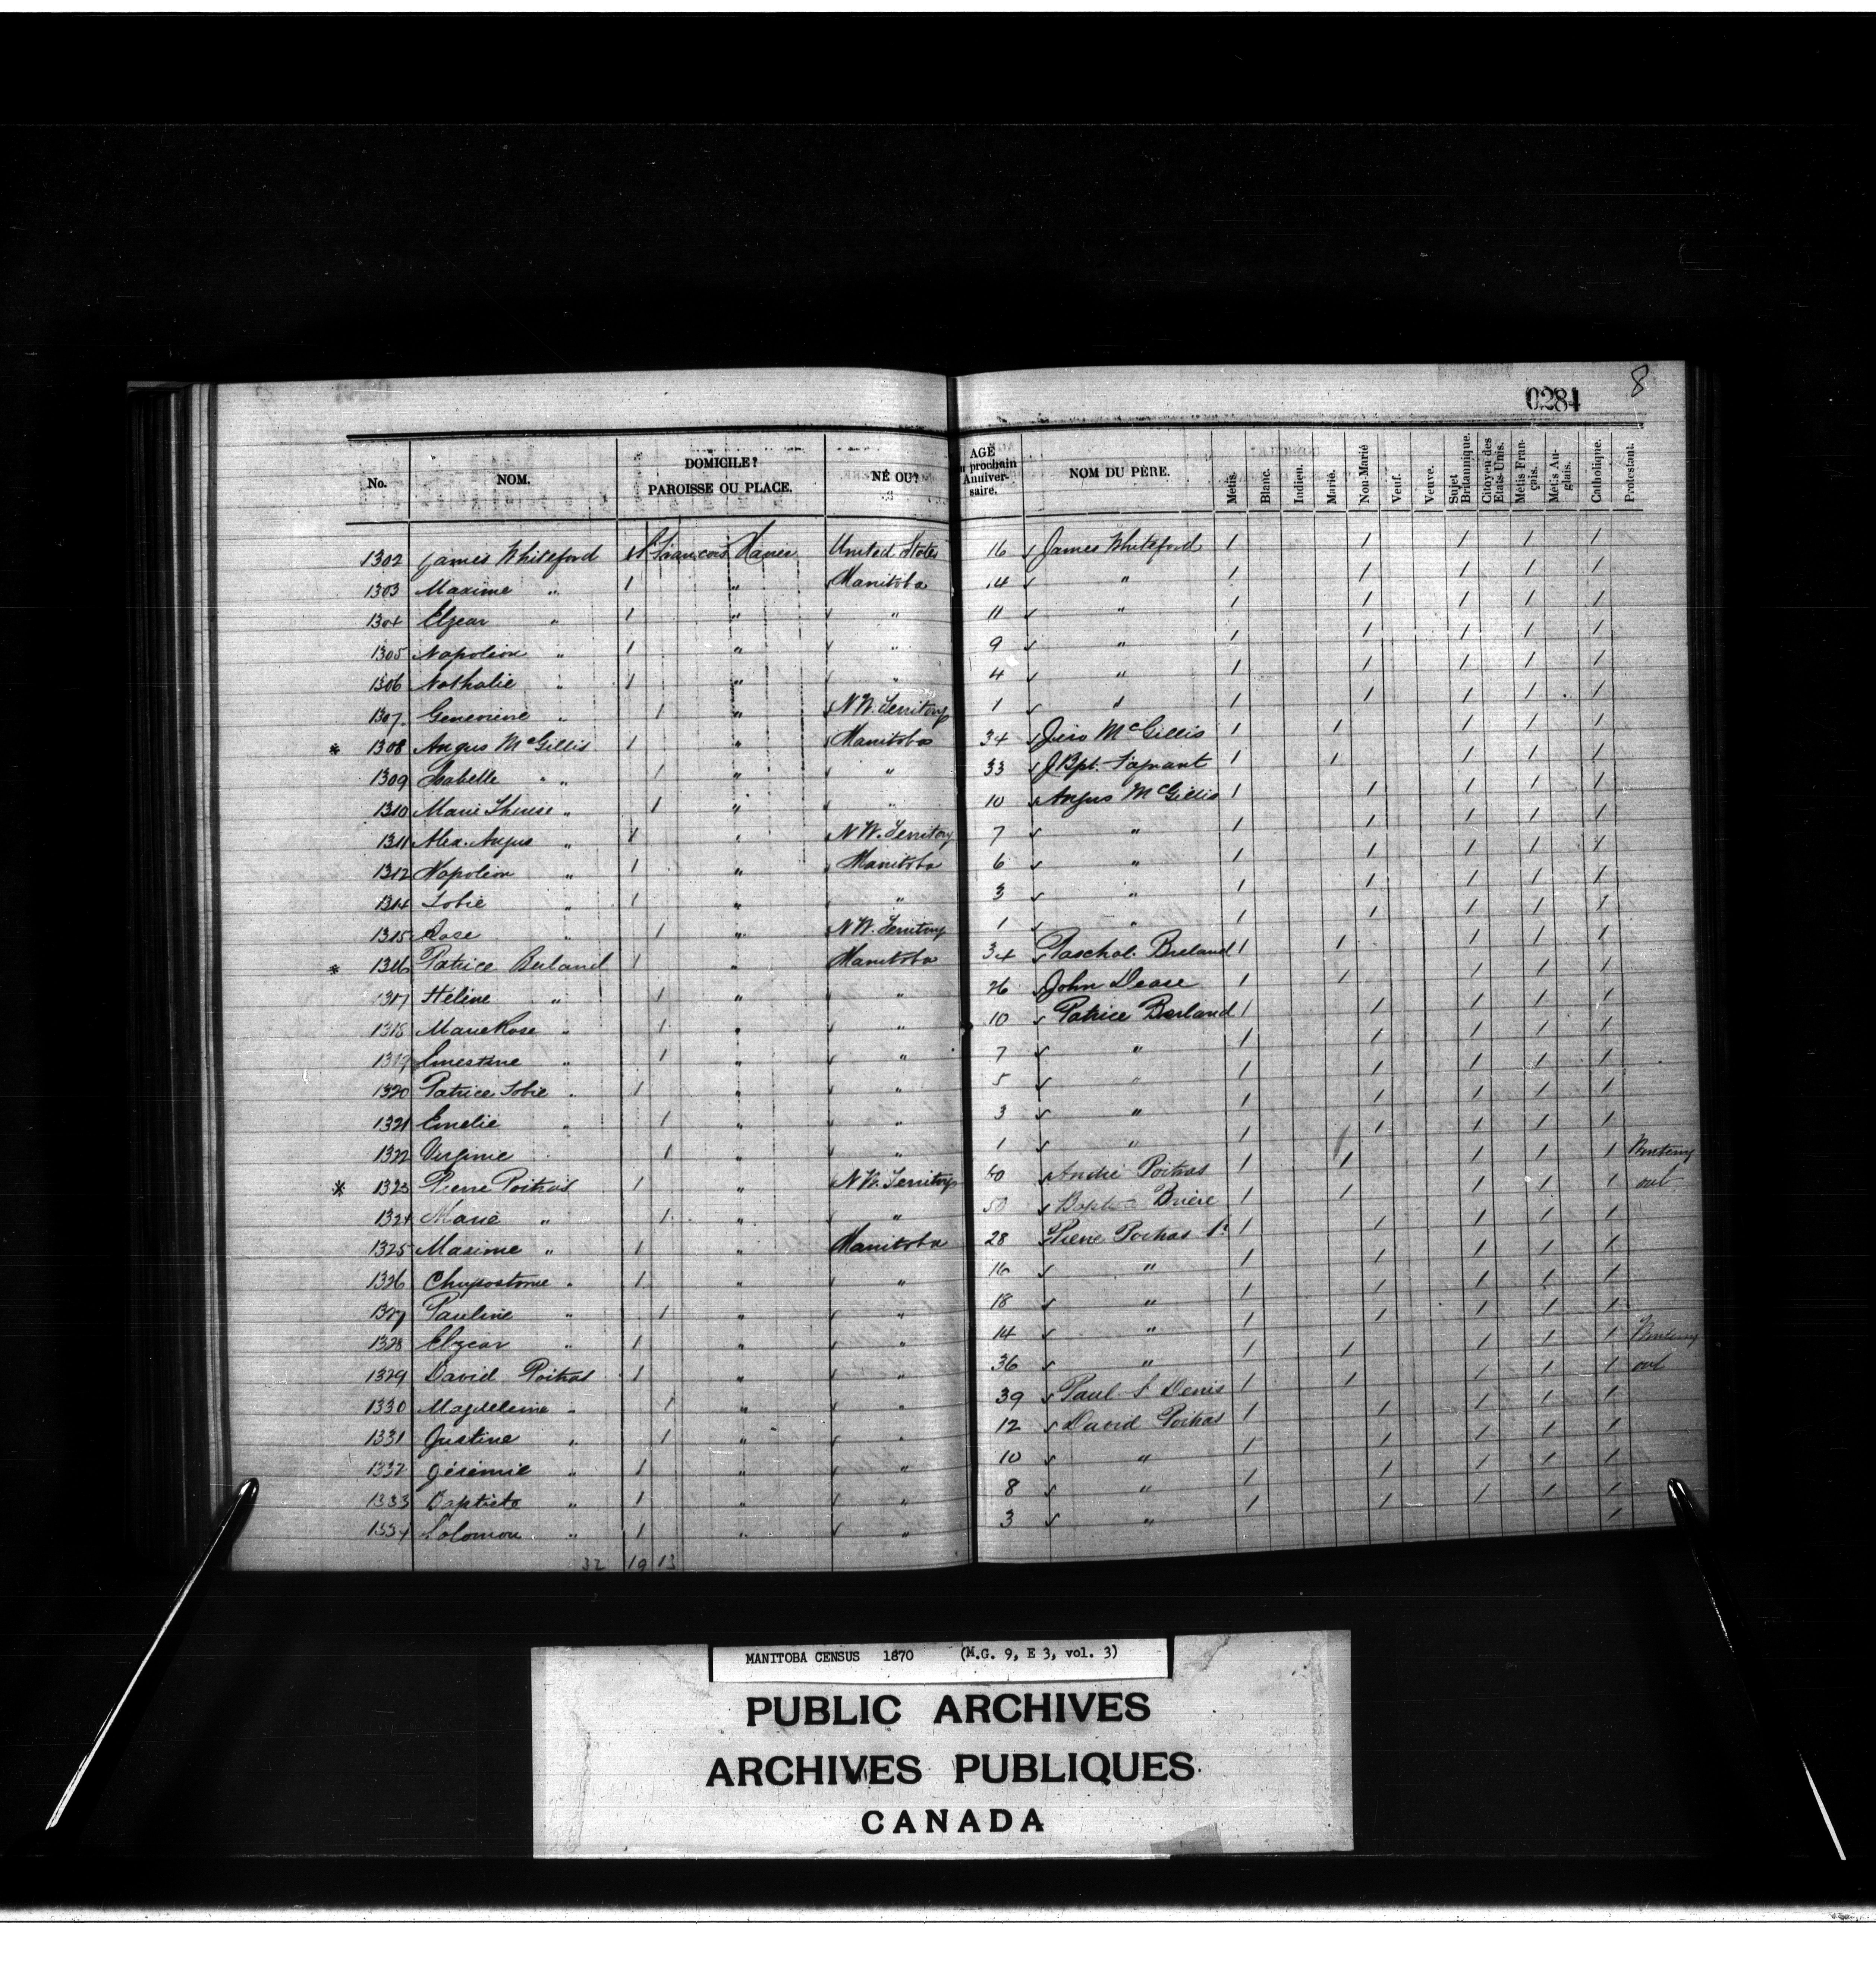 0284 8
No. NOM. DOMICILE? PAROISSE OU PLACE. NÉ OU? AGE au prochain Anniversaire. NOM DU PÈRE. Métis. Blanc. Indien. Marié. Non-Marié Veuf. Veuve. Sujet Britannique. Citoyen des Etats-Unis. Métis Français. Métis Anglais. Catholique. Protestant.
1302 James Whiteford 1 St François Xavier United States 16 James Whiteford 1 1 1 1 1
1303 Maxime " 1 " Manitoba 14 " 1 1 1 1 1
1304 Elzear " 1 " " 11 " 1 1 1 1 1
1305 Napoleon " 1 " " 9 " 1 1 1 1 1
1306 Nathalie " 1 " " 4 " 1 1 1 1 1
1307 Genevieve " 1 " N W. Territory 1 " 1 1 1 1 1
* 1308 Angus McGillis 1 " Manitoba 34 McGillis 1 1 1 1 1
1309 Isabelle " " 1 " " 33 J Bpt. 1 1 1 1 1
1310 Marie Therese " 1 " " 10 Angus McGillis 1 1 1 1 1
1311 Alex. Angus " 1 " N W. Territory 7 " 1 1 1 1 1
1312 Napoleon " 1 " Manitoba 6 " 1 1 1 1 1
1314 Tobie " 1 " " 3 " 1 1 1 1 1
1315 Rose " 1 " N W. Territory 1 " 1 1 1 1 1
* 1316 Patrice Berland 1 " Manitoba 34 Paschal Breland 1 1 1 1 1
1317 Hélène " 1 " " 26 John Dease 1 1 1 1 1
1318 Marie Rose " 1 " " 10 Patrice Berland 1 1 1 1 1
1319 Ernestine " 1 " " 7 " 1 1 1 1 1
1320 Patrice Tobie " 1 " " 5 " 1 1 1 1 1
1321 Emelie " 1 " " 3 " 1 1 1 1 1
1322 Virginie 1 " " 1 " 1 1 1 1 1
* 1323 Pierre Poitras 1 " N W. Territory 40 André Poitras 1 1 1 1 1 Wintering
1324 Marie " 1 " " 50 Baptiste Brière 1 1 1 1 1 out
1325 Maxime " 1 " Manitoba 28 Pierre Poitras 1 1 1 1 1
1326 Chrysostome " 1 " " 16 " 1 1 1 1 1
1327 Pauline " 1 " " 18 " 1 1 1 1 1
1328 Elzear " 1 " " 14 " 1 1 1 1 1
1329 David Poitras 1 " " 36 " 1 1 1 1 1 Wintering
1330 Magdeleine " 1 " " 39 Paul St Denis 1 1 1 1 1 out
1331 Justine " 1 " " 12 David Poitras 1 1 1 1 1
1332 Jérémie " 1 " " 10 " 1 1 1 1 1
1333 Baptiste " 1 " " 8 " 1 1 1 1 1
1334 Solomon " 1 " " 3 " 1 1 1 1 1
32 19 13
MANITOBA CENSUS 1870 (M.G. 9, E 3, vol. 3)
PUBLIC ARCHIVES
ARCHIVES PUBLIQUES
CANADA